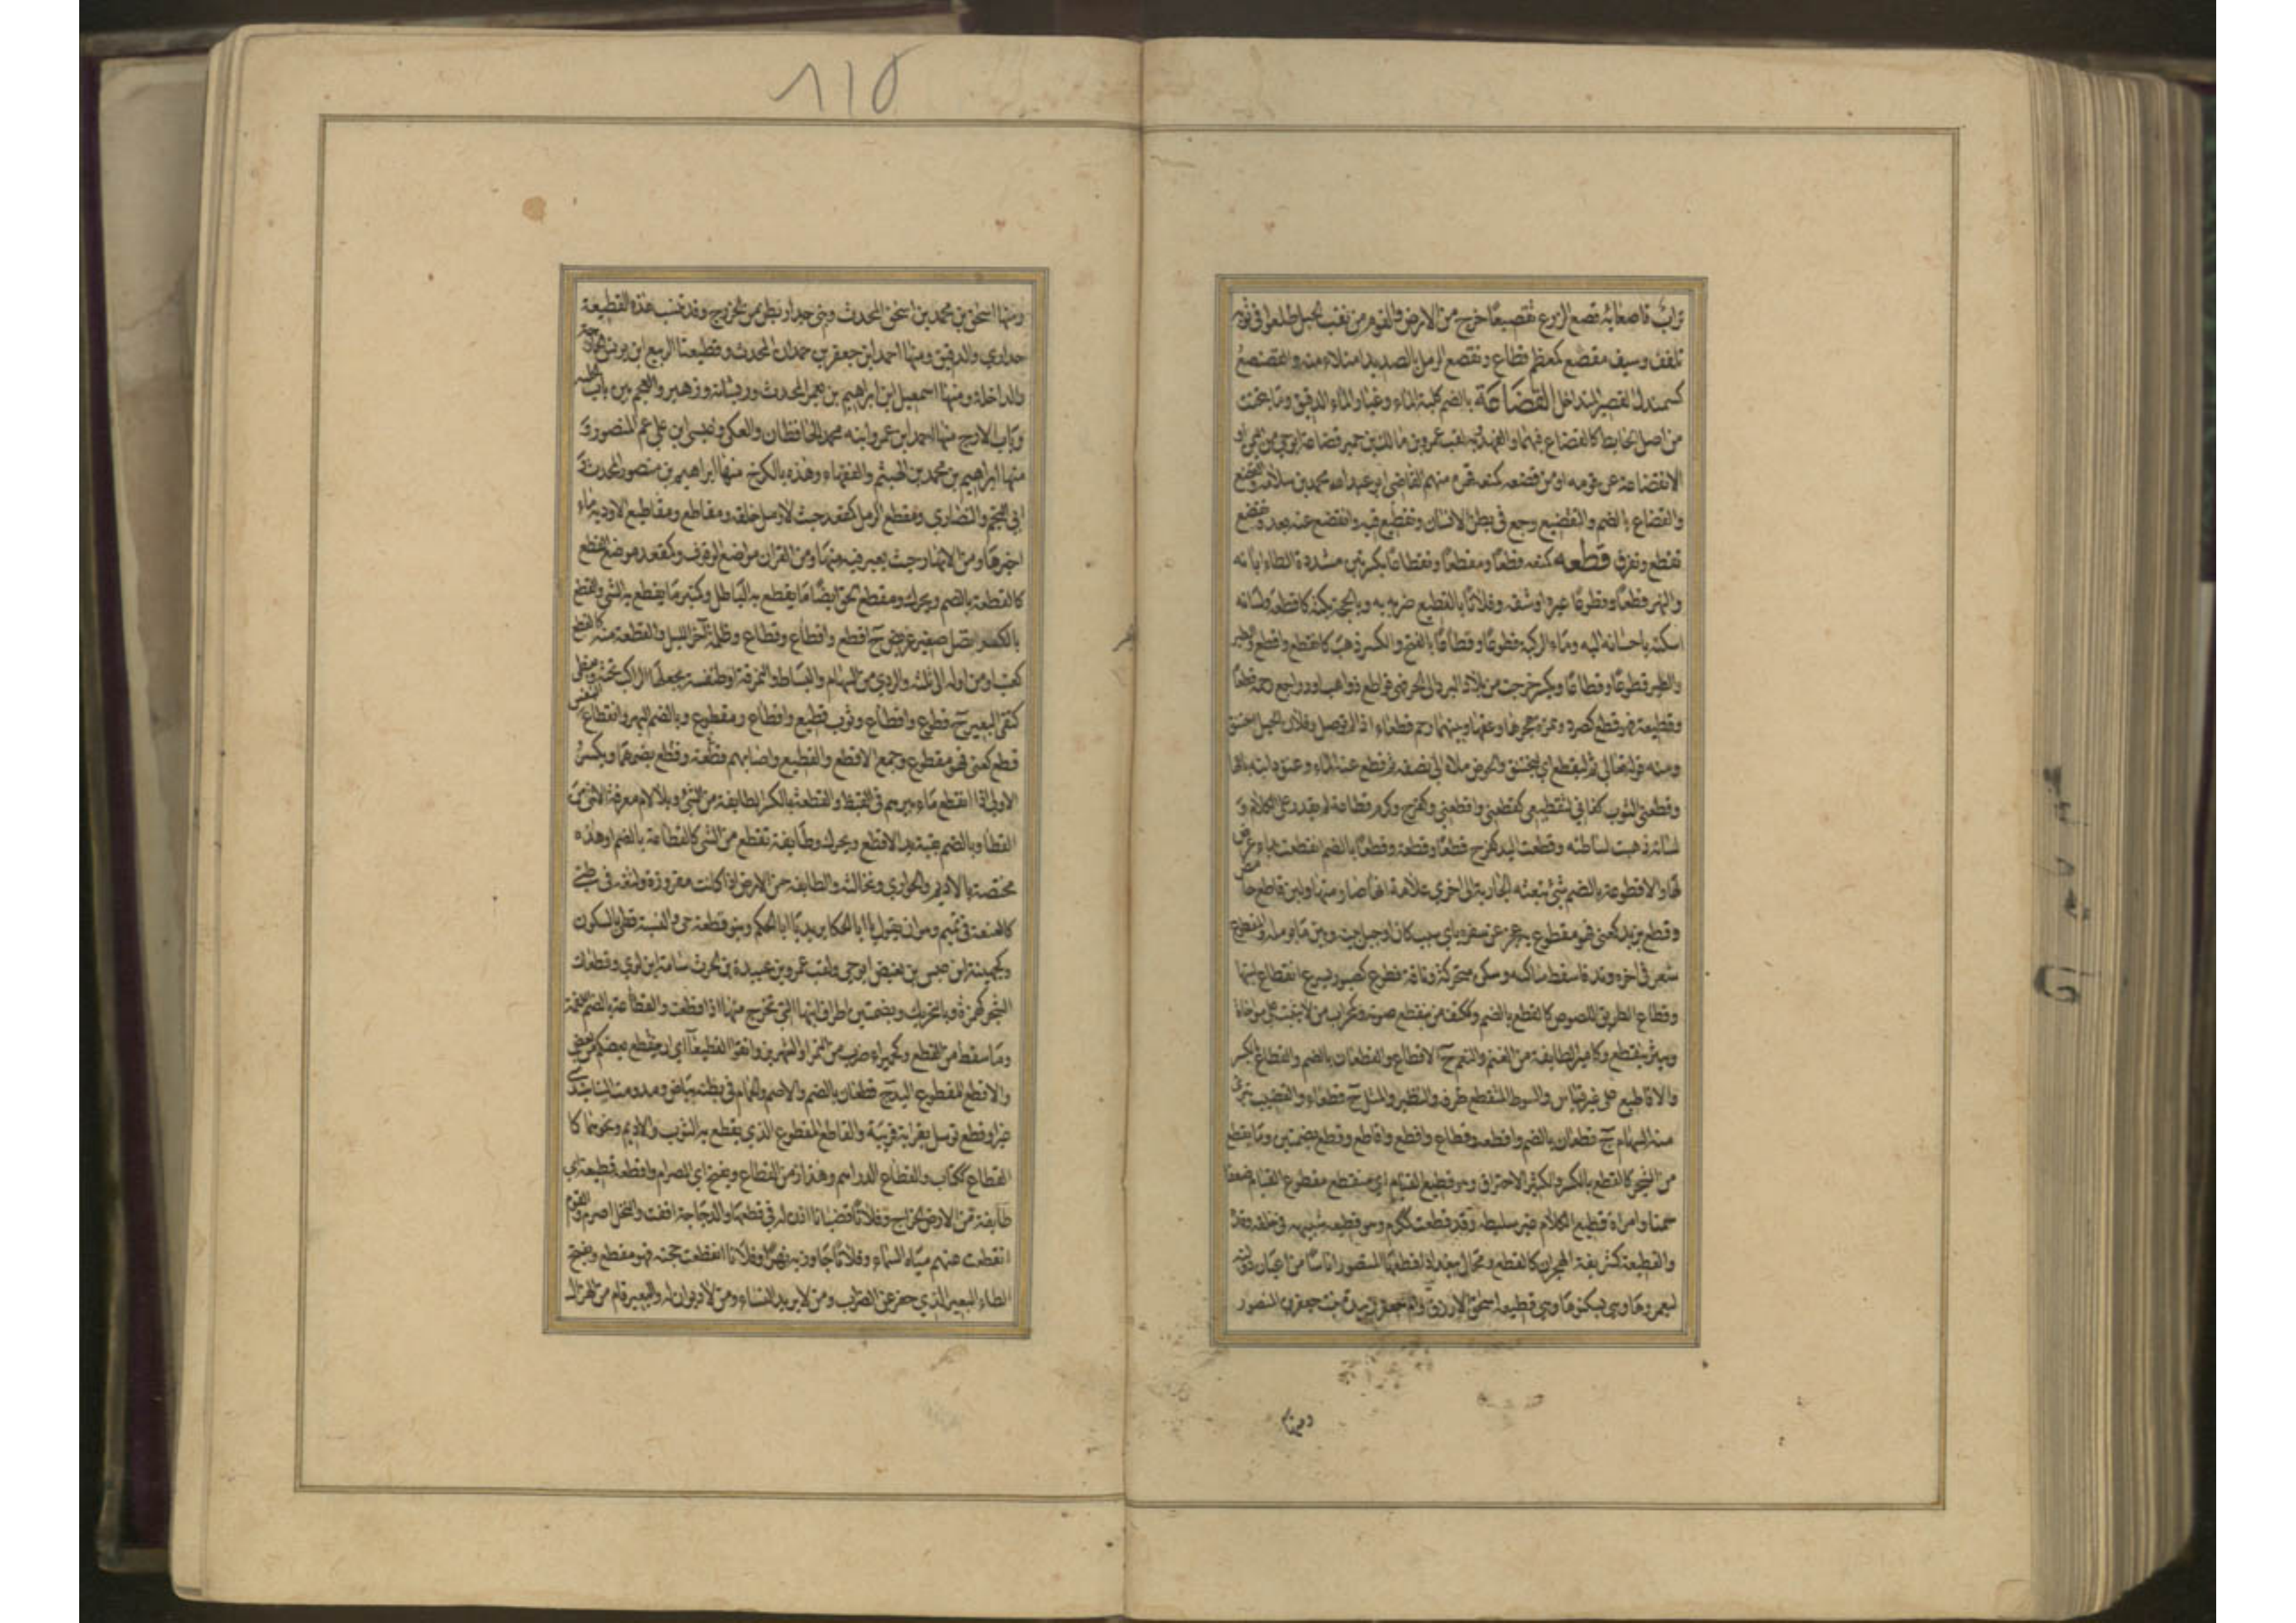 تراب قاصعائه قصع الزرع تقصيعا خرج من الارض والقوم من نقب الجبل طلعوا فى ثوبه
تلفف وسيف مقصع كمعظم قطاع وتقصع الرمل بالصديد امتلاء منه والقصنصع
كسمندل القصير المتداخل القضاعة بالضم كلبة الماء وغبار الماء الدقيق وما يتحتت
من اصل الحايط كالقضاع فيهما والفهد وبه لقب عمرو بن مالك بن حمير قضاعة ابو حي من اليمن او
الانقضاعه عن قومه او من قضعه كمنعه قهره منهم القاضي ابو عبد الله محمد بن سلامة
والقضاع بالضم والتقضيع وجع فى بطن الانسان وتقطيع فيه وانقضع عنه بعد وتقضع
تقطع وتفرق قطعه كمنعه قطعا ومقطعا وتقطاعا بكسرتين مشددة الطاء ابانه
والنهر قطعا وقطوعا عبره او شقه وفلانا بالقطيع ضربه به وبالحجة بكته كاقطعه ولسانه
اسكته باحسانه اليه وماء الركية قطوعا وقطاعا بالفتح والكسر ذهب كانقطع واقطع والطير
والطير قطوعا وقطاعا ويكسر خرجت من بلاد البرد الى الحر فهى قواطع ذواهب او رواجع ورحمه قطعا
وقطيعة فهو قطع كصرد وهمزة هجرها وعقها وبينهما رحم قطعاء اذا لم توصل وفلان بالحبل اختنق
ومنه قوله تعالى ثم ليقطع اي ليختنق والحوض ملاه الى نصفه ثم قطع عنه الماء وعنق دابته باعها
وقطعنى الثوب كفانى لتقطيعى كقطعنى واقطعنى وكفرح وكرم قطاعة لم يقدر على الكلام و
لسانه ذهبت سلاطته وقطعت اليد كفرح قطعا وقطعة وقطعا بالضم انقطعت بداء عرض
لها والاقطوعة بالضم شئ تبعثه الجارية الى اخرى علامة انها صارمتها ولبن قاطع حامض
وقطع بزيد كعنى فهو مقطوع به عجز عن سفره باي سبب كان او حيل بينه وبين ما يومله والمقطوع
شعر فى اخره وتد فاسقط ساكنه وسكن متحركه وناقة قطوع كصبور يسرع انقطاع لبنها
وقطاع الطريق اللصوص كالقطع بالضم وككتف من ينقطع صوته وكمحراب من لا يثبت على مواخاة
وبئر ينقطع وكامير الطايفة من الغنم والنعم ج الاقطاع والقطعان بالضم والقطاع بالكسر
والاقاطيع على غير قياس والسوط المنقطع طرفه والنظير والمثل ج قطعاء والقضيب تبرى
منه السهام ج قطعان بالضم واقطعه وقطاع واقطع واقاطع وقطع بضمتين وما يقطع
من الشجر كالقطع بالكسر والكثير الاحتراق وهو قطيع القيام اي منقطع مقطوع القيام ضعفا
سمنا وامراة قطيع الكلام غير سليطه وقد قطعت ككرم وهو قطيعه شبيهه فى خلقه وقده
والقطيعة كشريفة الهجران كالقطع ومحال ببغداد اقطعها المنصور اناسا من اعيان دولته
ليعمروها وهى ويسكنوها وهى قطيعة اسحق الازرق وام جعفر زبيدة بنت جعفر بن المنصور
ومنها
١١٥
ومنها اسحق بن محمد بن اسحق المحدث وبنى جدار بطن من الخزرج وقد تنسب هذه القطيعة
جدارى والدقيق ومنها احمد ابن جعفر بن حمدان المحدث وقطيعتا الربيع ابن يونس الخارجة
والداخلة ومنها اسمعيل ابن ابراهيم بن يعمر المحدث وريسانة وزهير والعجم بين باب الحلبة
وباب الازج منها احمد ابن عمر وابنه محمد الحافظان والعكى وعيسى ابن على عم المنصور و
منها ابراهيم بن محمد بن الهيثم والفقهاء وهذه بالكرخ منها ابراهيم بن منصور المحدث و
ابى النجم والنصارى ومقطع الرمل كمقعد حيث لا رمل خلفه ومقاطع ومقاطيع الاودية مآء
اخيرها ومن الانهار حيث يعبر فيه منها ومن القران مواضع الوقوف وكمقعد موضع القطع
كالقطعة بالضم ويحرك ومقطع الحق ايضا ما يقطع به الباطل وكمنبر ما يقطع به الشئ والقطع
بالكسر نصل صغير عريض ج اقطع واقطاع وقطاع وظلمة آخر الليل والقطعة منه كالقطع
كعنب او من اوله الى ثلثه والردي من السهام والبساط والنمرقة او طنفسة يجعلها الراكب تحته وتغطى
كتفى البعير ج قطوع واقطاع وثوب قطيع واقطاع ومقطوع وبالضم البهر وانقطاع النفس
قطع كعنى فهو مقطوع وجمع الاقطع والقطيع واصابهم قطعة وقطع بضمهما ويكسر
الاولى اذا انقطع ماء بيرهم فى القيظ والقطعة بالكسر الطايفة من الشئ وبلا لام معرفة الانثى من
القطا وبالضم بقية يد الاقطع ويحرك وطايفة تقطع من الشئ كالقطاعة بالضم او هذه
مختصة بالاديم والحوارى ونخالته والطايفة من الارض اذا كانت مفروزة ولثغة فى طئ
كالعنعنة فى تميم وهو ان يقول يا ابا الحكا يريد يا ابا الحكم وبنو قطعة حى والنسبة قطعى بالسكون
وكجهينة ابن عبس بن بغيض ابو حى ولقب عمرو بن عبيدة بن الحرث سامة ابن لوي وقطعات
الشجر كهمزة وبالتحريك وبضمتين اطراف ابنها التى تخرج منها اذا قطعت والقطاعة بالضم اللقمة
وما سقط من القطع وكحميراء ضرب من التمر او الشهريز واتقوا القطيعآ اي ان ينقطع بعضكم من بعض
والاقطع المقطوع اليد ج قطعان بالضم والاصم والحمام فى بطنه بياض ومد ومت الينا بثدى
غير اقطع توسل بقرابة قريبة والقاطع المقطوع الذي يقطع به الثوب والاديم ونحوهما كا
القطاع ككتاب والقطاع الدراهم وهذا زمن القطاع ويفتح اي الصرام واقطعه قطيعة اي
طايفة من الارض الخراج وفلانا قضبانا اذن له فى قطعها والدجاجة اقفت والنخل اصرم والقوم
انقطعت عنهم مياه السماء وفلانا جاوز به نهرا وفلان انقطعت حجته فهو مقطع وبفتح
الطاء البعير الذي جفر عن الضراب ومن لا يريد النساء ومن لا ديوان له والبعير قام من الهزال